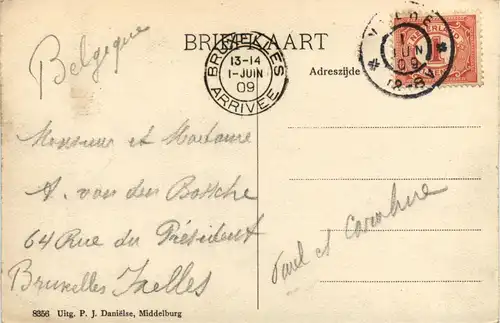 Belgique
BRIEFKAART
BRUXELLES
13-14
1-JUIN
09
ARRIVEE
1 JUN 09
Adreszijde
NEDERLAND
1
Monsieur et Madame
A. van den Bossche
64 Rue du Président
Bruxelles Ixelles
Paul et Caroline
8356 Uitg. P. J. Daniëlse, Middelburg